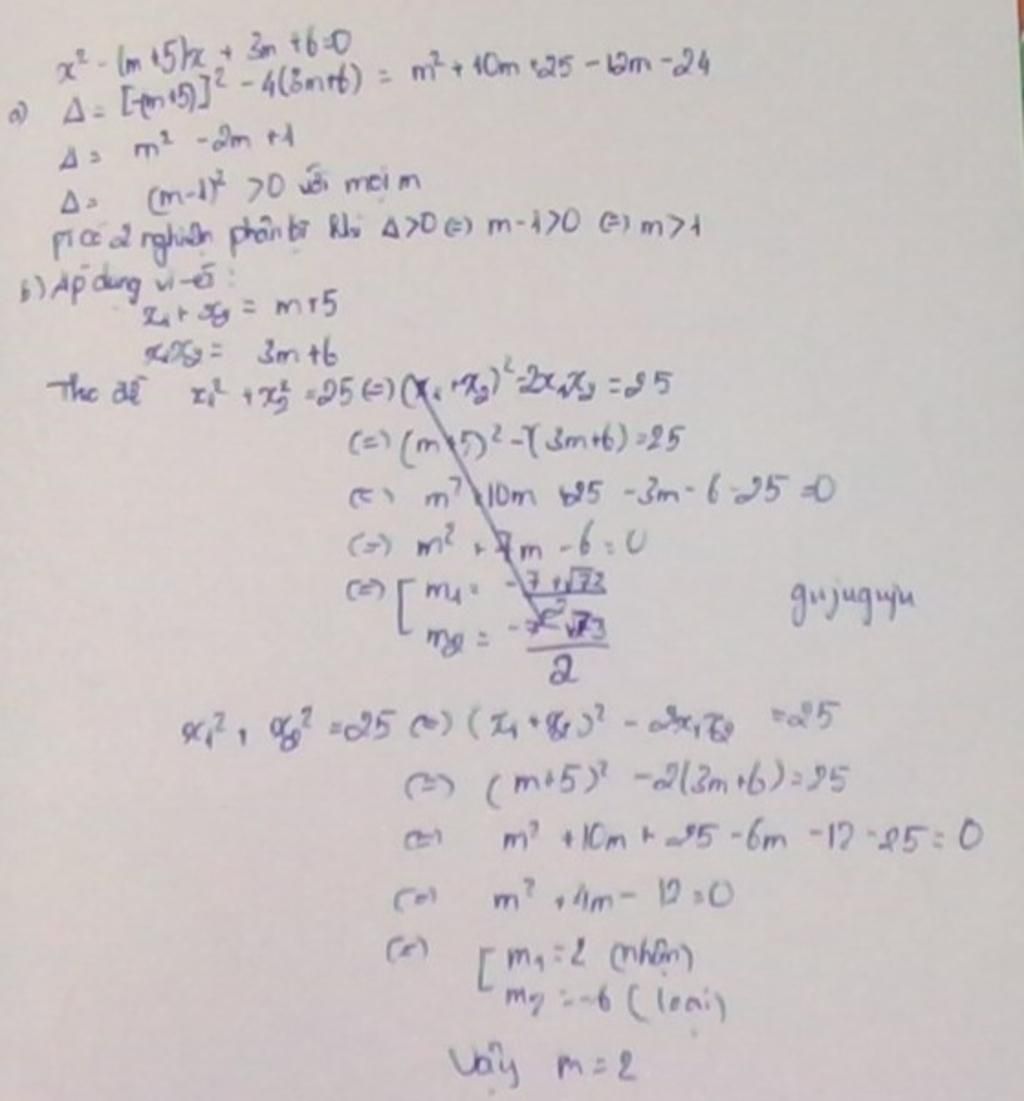 x² - (m+5)x + 3m+6=0
a) Δ = [-(m+5)]² - 4(3m+6) = m² + 10m+25 - 12m - 24
Δ = m² - 2m + 1
Δ = (m-1)² >0 với mọi m
pt có 2 nghiệm phân bt khi Δ>0 (=) m-1>0 (=) m>1
b) Áp dụng vi-ét :
x₁ + x₂ = m+5
x₁x₂ = 3m+6
Theo đề x₁² + x₂² = 25 (=) (x₁+x₂)² - 2x₁x₂ = 25
(=) (m+5)² - (3m+6) = 25
(=) m² + 10m + 25 - 3m - 6 - 25 = 0
(=) m² + 7m - 6 = 0
(=) [ m₁ = -7+√73
m₂ = -7-√73 / 2
gujuguju
x₁² + x₂² = 25 (=) (x₁+x₂)² - 2x₁x₂ = 25
(=) (m+5)² - 2(3m+6) = 25
(=) m² + 10m + 25 - 6m - 12 - 25 = 0
(=) m² + 4m - 12 = 0
(=) [ m₁ = 2 (nhận)
m₂ = -6 (loại)
Vậy m = 2